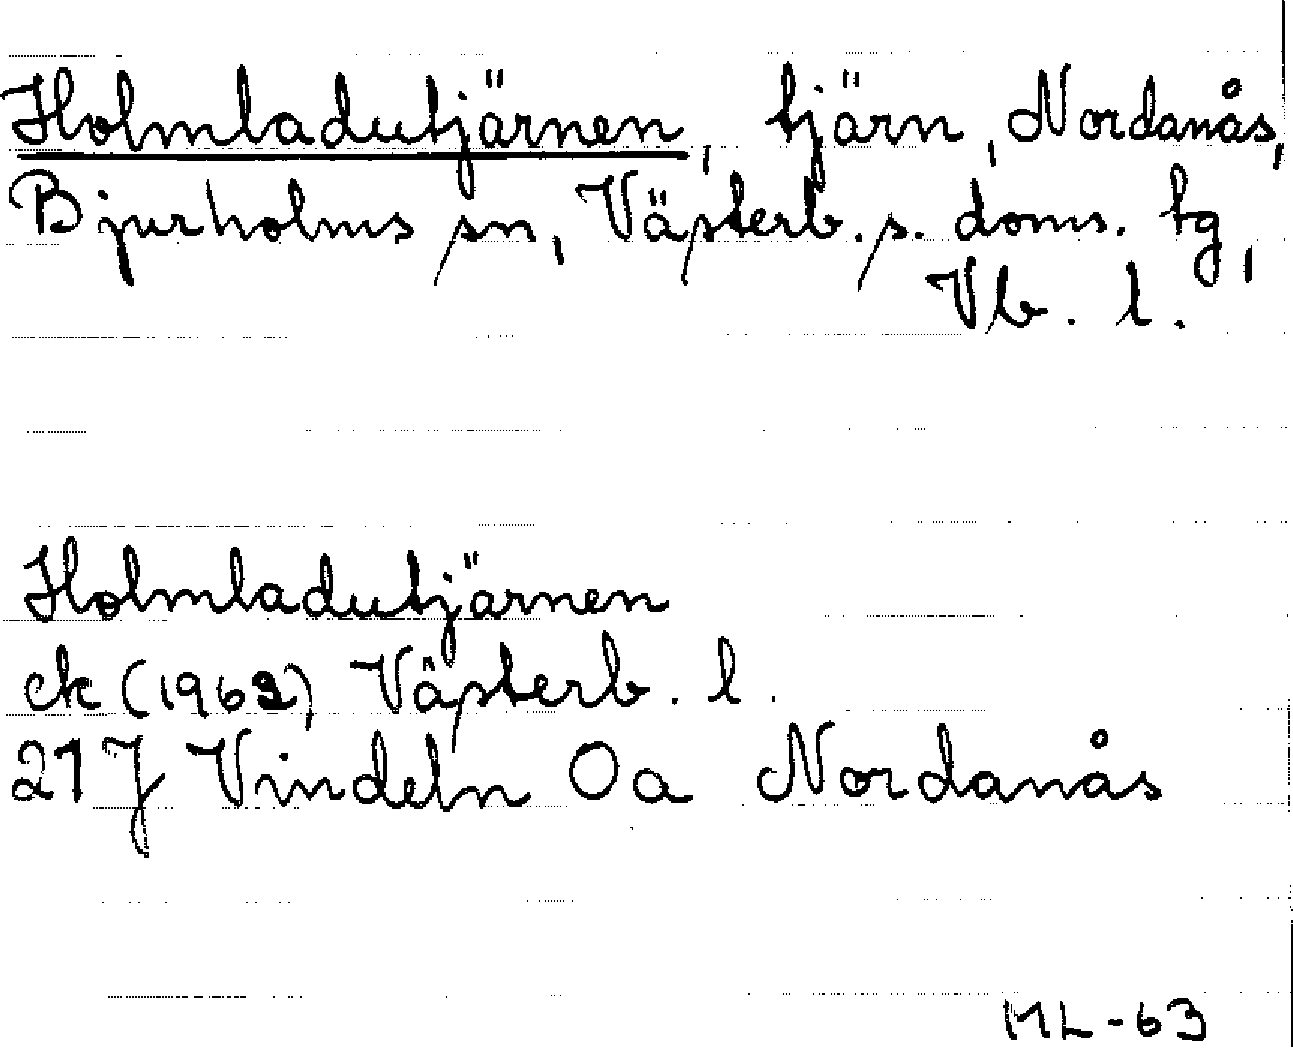 Holmladutjärnen, tjärn, Nordanås,
Bjurholms sn, Västerb. s. doms. tg,
Vb. l.
Holmladutjärnen
ek (1962) Västerb. l.
21 J Vindeln 0a Nordanås
ML-63